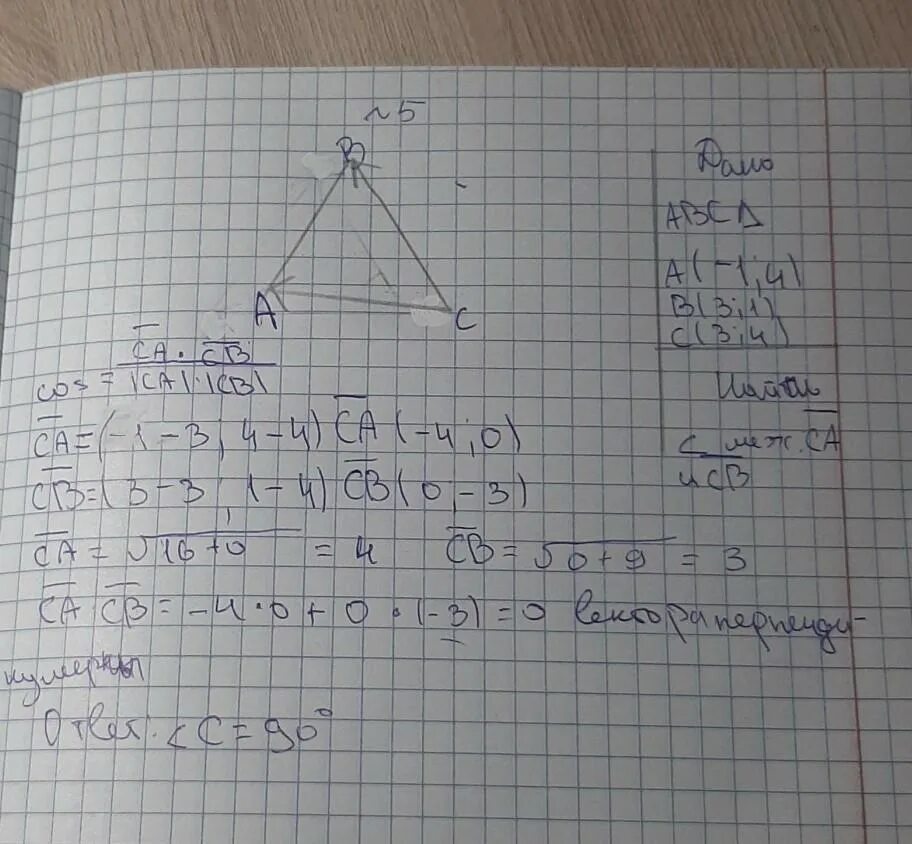 ~5
B
A
C
Дано
ABC Δ
A(-1; 4)
B(3; 1)
C(3; 4)
Найти
∠ меж. CA
и CB
cos = CA · CB / |CA|·|CB|
CA = (-1-3; 4-4) CA (-4; 0)
CB = (3-3; 1-4) CB (0; -3)
CA = √16+0 = 4 CB = √0+9 = 3
CA CB = -4·0 + 0·(-3) = 0 вектора перпенди-
кулярны
Ответ: ∠C = 90°